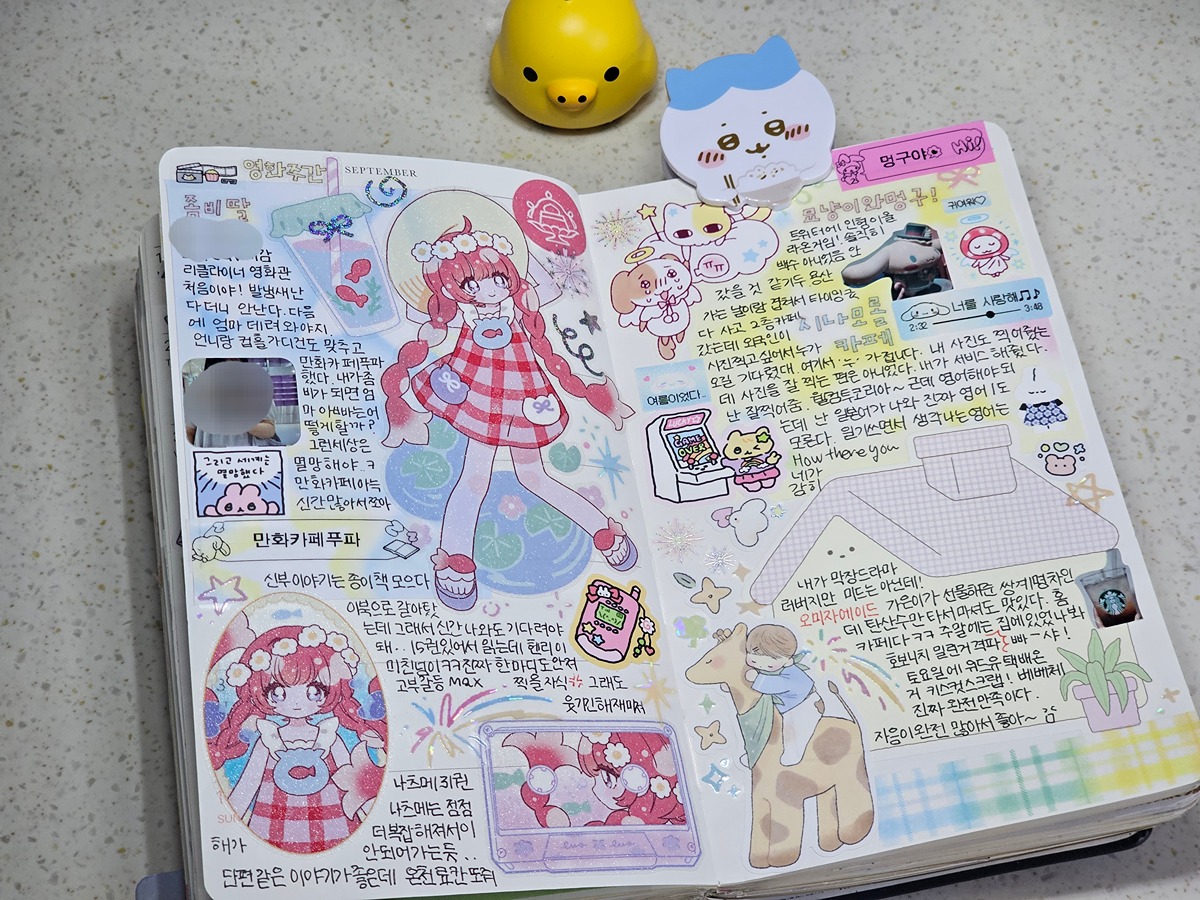 영화주간
SEPTEMBER
좀비딸
리클라이너 영화관
처음이야! 발냄새 난
다더니 안난다. 다음
에 엄마 데려와야지.
언니랑 컵홀더 건도 맞추고
만화카페푸파
했다. 내가 좀
비가 되면 엄
마 아빠는 어
떻게 할까?
그런세상은
멸망해야.ㅋ
만화카페야는
신간많아서 좋아
그리고 세계는
멸망했다
만화카페푸파
신부이야기는 종이책 모으다
이북으로 갈아탔
는데 그래서 신간 나와도 기다려야
돼.. 15권있어서 읽는데 헨리 이
미친놈이ㅋㅋ진짜 한마디도안져
고부갈등 MAX 찍을 자식 그래도
웃기긴해재밌어
SUN
나츠메 31권
나츠메는 점점
더 복잡해져서 이
안되어가는듯..
해가
단편같은 이야기가 좋은데
멍구야
Hi!
묘냥이와멍구!
귀여워♡
트위터에 인형이을
라온거임! 솔직히
백수 아니었음 안
갔을 것 같기두 용산
가는 날이랑 겹쳐서 타이밍굿
다 사고 2층카페
시나모롤
카페
갔는데 외국인이
사진찍고싶어서 누가
오길 기다렸대. 여기서 누 가접니다. 내 사진도 찍어줬는
데 사진을 잘 찍는 편은 아니었다. 내가 서비스 해줬다.
난 잘찍어줌. 웰컴트코리아~ 근데 영어해야되
는데 난 일본어가 나와 진짜 영어 1도
모른다. 일기쓰면서 생각나는 영어는
How there you
네가
감히
너를 사랑해♫♪
2:32
3:48
여름이었다..
LUCKY!
GAME
OVER!
내가 막장드라마
러버지만 미드는 아섰데!
오미자에이드 가은이가 선물해준 쌍계명차인
데 탄산수만 타서 마셔도 맛있다. 홈
카페다ㅋㅋ 주말에는 집에 있었나봐
호보니치 밀린거 격파 빠-샤!
토요일에 위드유 택배온
거 키스컷스크랩! 베베체
진짜 완전만족이다.
자음이 완전 많아서 좋아~ 굼